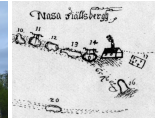 Nasa Fiällsberg
10 11 12 13 14
15
16
20